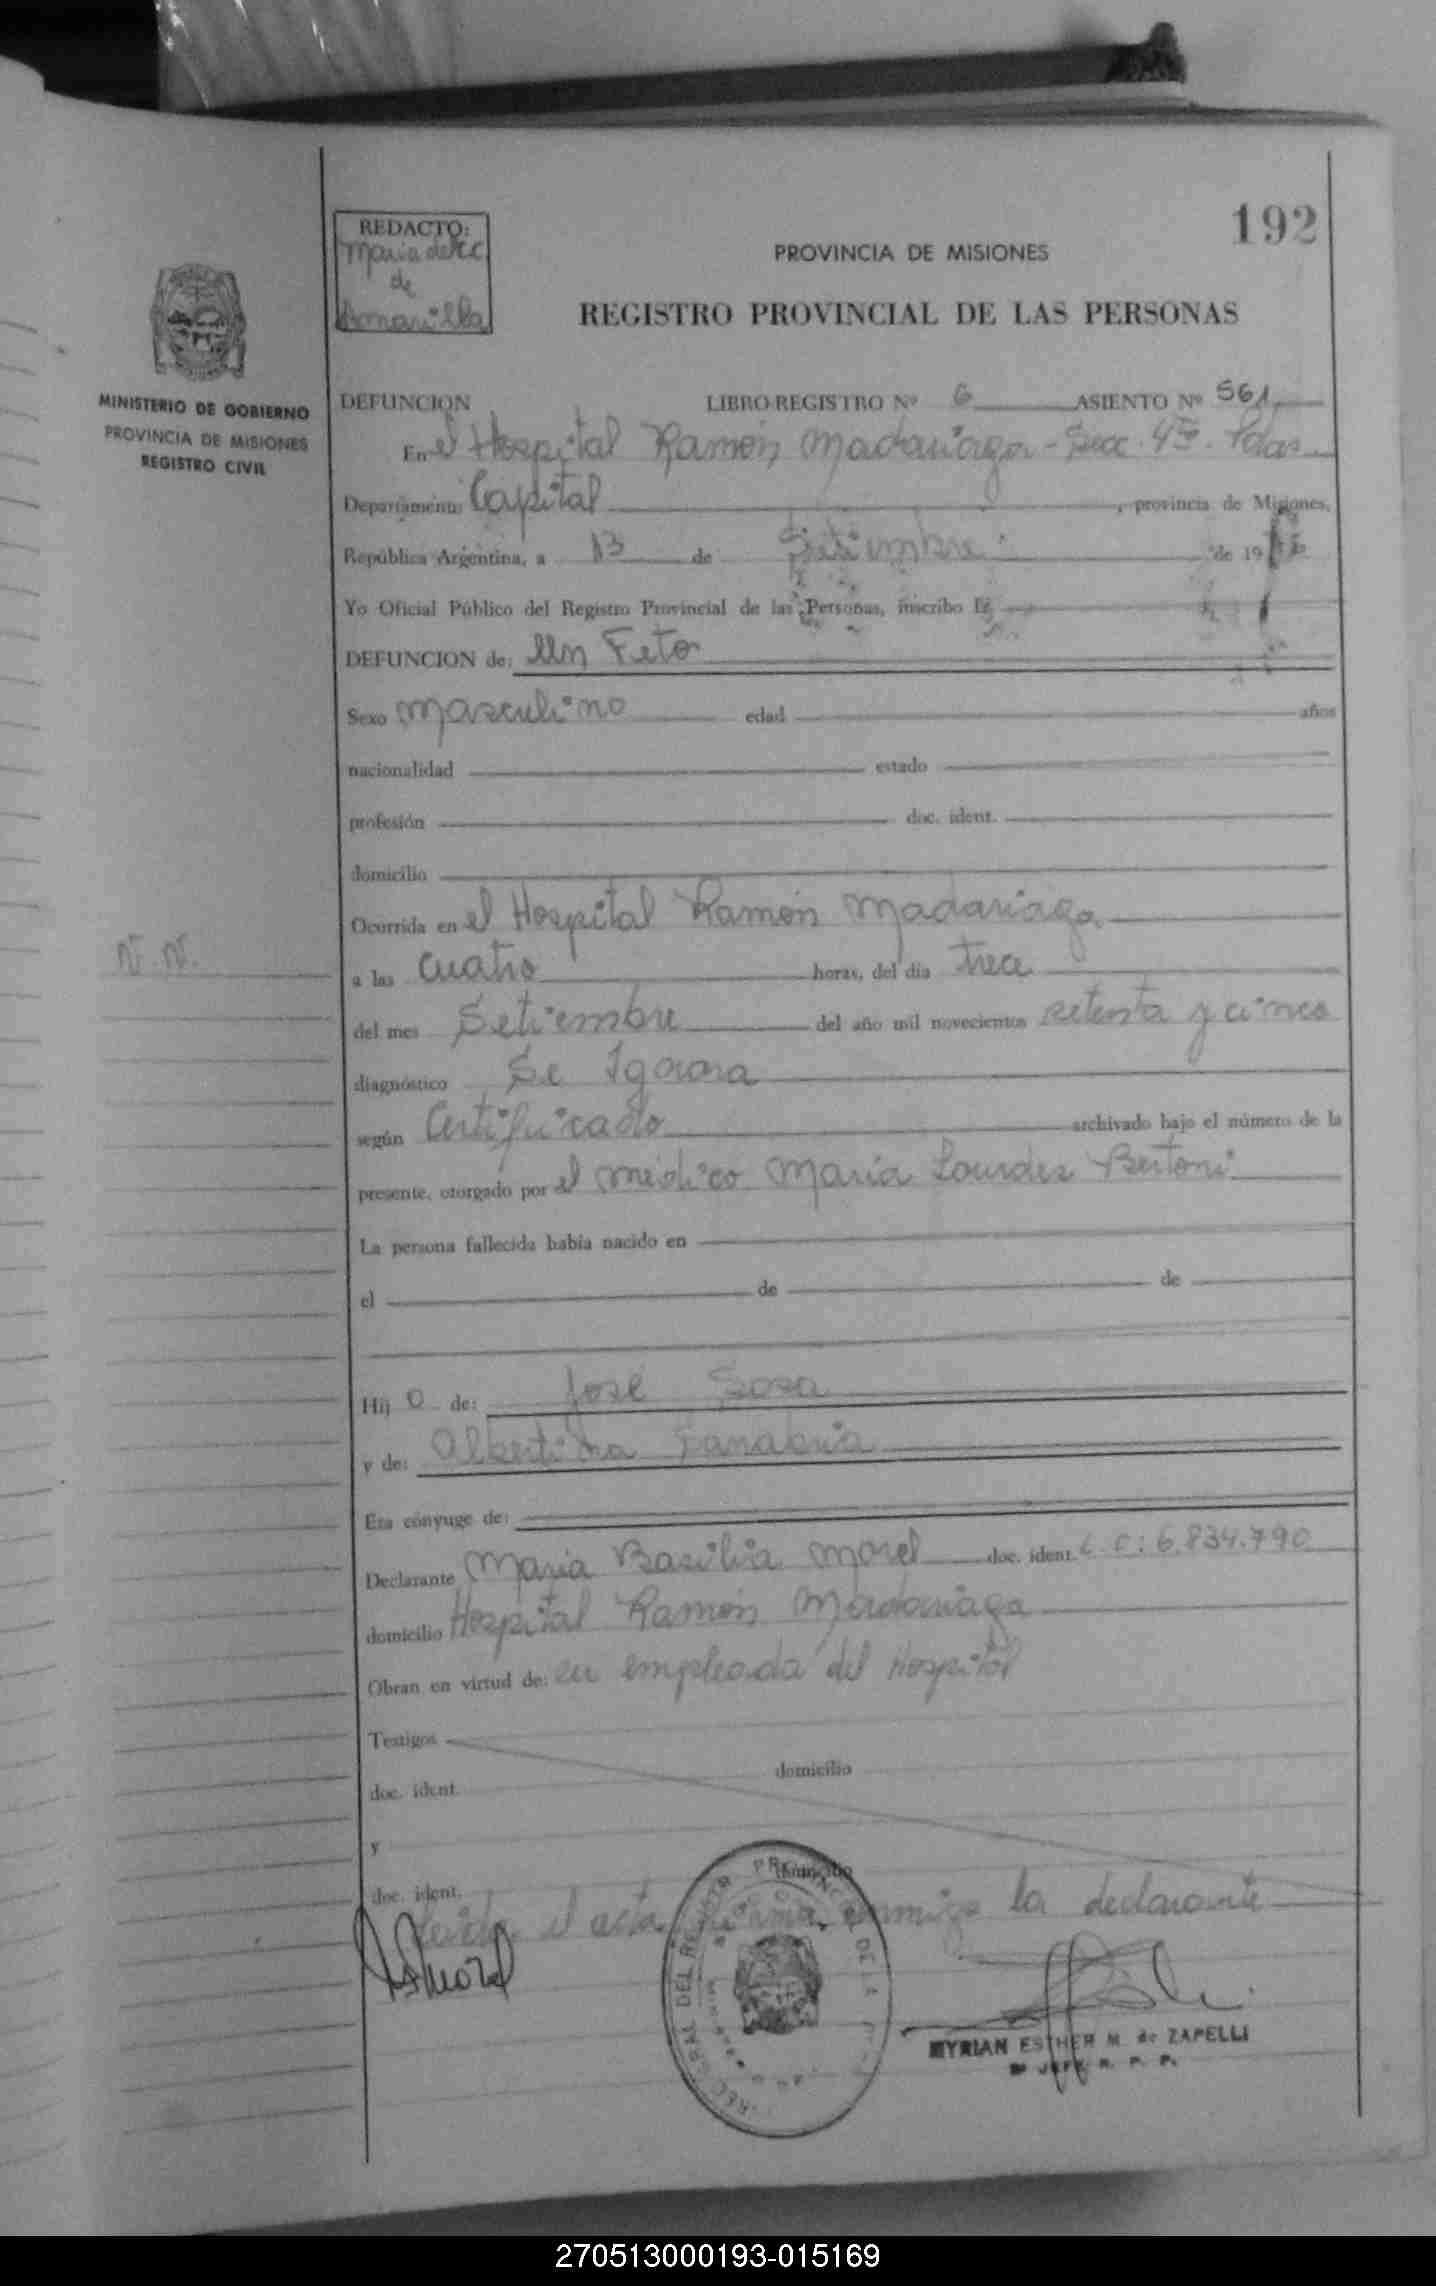 192
REDACTO:
Maria del C.
de
Amarilla
PROVINCIA DE MISIONES
REGISTRO PROVINCIAL DE LAS PERSONAS
MINISTERIO DE GOBIERNO
PROVINCIA DE MISIONES
REGISTRO CIVIL
DEFUNCION LIBRO-REGISTRO Nº 6 ASIENTO Nº 561
En el Hospital Ramón Madariaga - Secc. 4ta. Pdas
Departamento Capital, provincia de Misiones,
República Argentina, a 13 de Setiembre de 19
Yo Oficial Público del Registro Provincial de las Personas, inscribo la
DEFUNCION de: Un Feto
Sexo Masculino edad años
nacionalidad estado
profesión doc. ident.
domicilio
Ocurrida en el Hospital Ramón Madariaga
N.N.
a las cuatro horas, del día trece
del mes Setiembre del año mil novecientos setenta y cinco
diagnóstico Se Ignora
según Certificado archivado bajo el número de la
presente, otorgado por el médico María Lourdes Bertoni
La persona fallecida había nacido en
el de de
Hij o de: José Sosa
y de: Albertina Sanabria
Era cónyuge de:
Declarante Maria Basilia Morel doc. ident. L.C: 6.834.790
domicilio Hospital Ramón Madariaga
Obran en virtud de: ser empleada del Hospital
Testigos
doc. ident. domicilio
y
doc. ident. domicilio
Leida el acta firma conmigo la declarante
Morel
MYRIAN ESTHER M. de ZAPELLI
JEFE R. P. P.
270513000193-015169